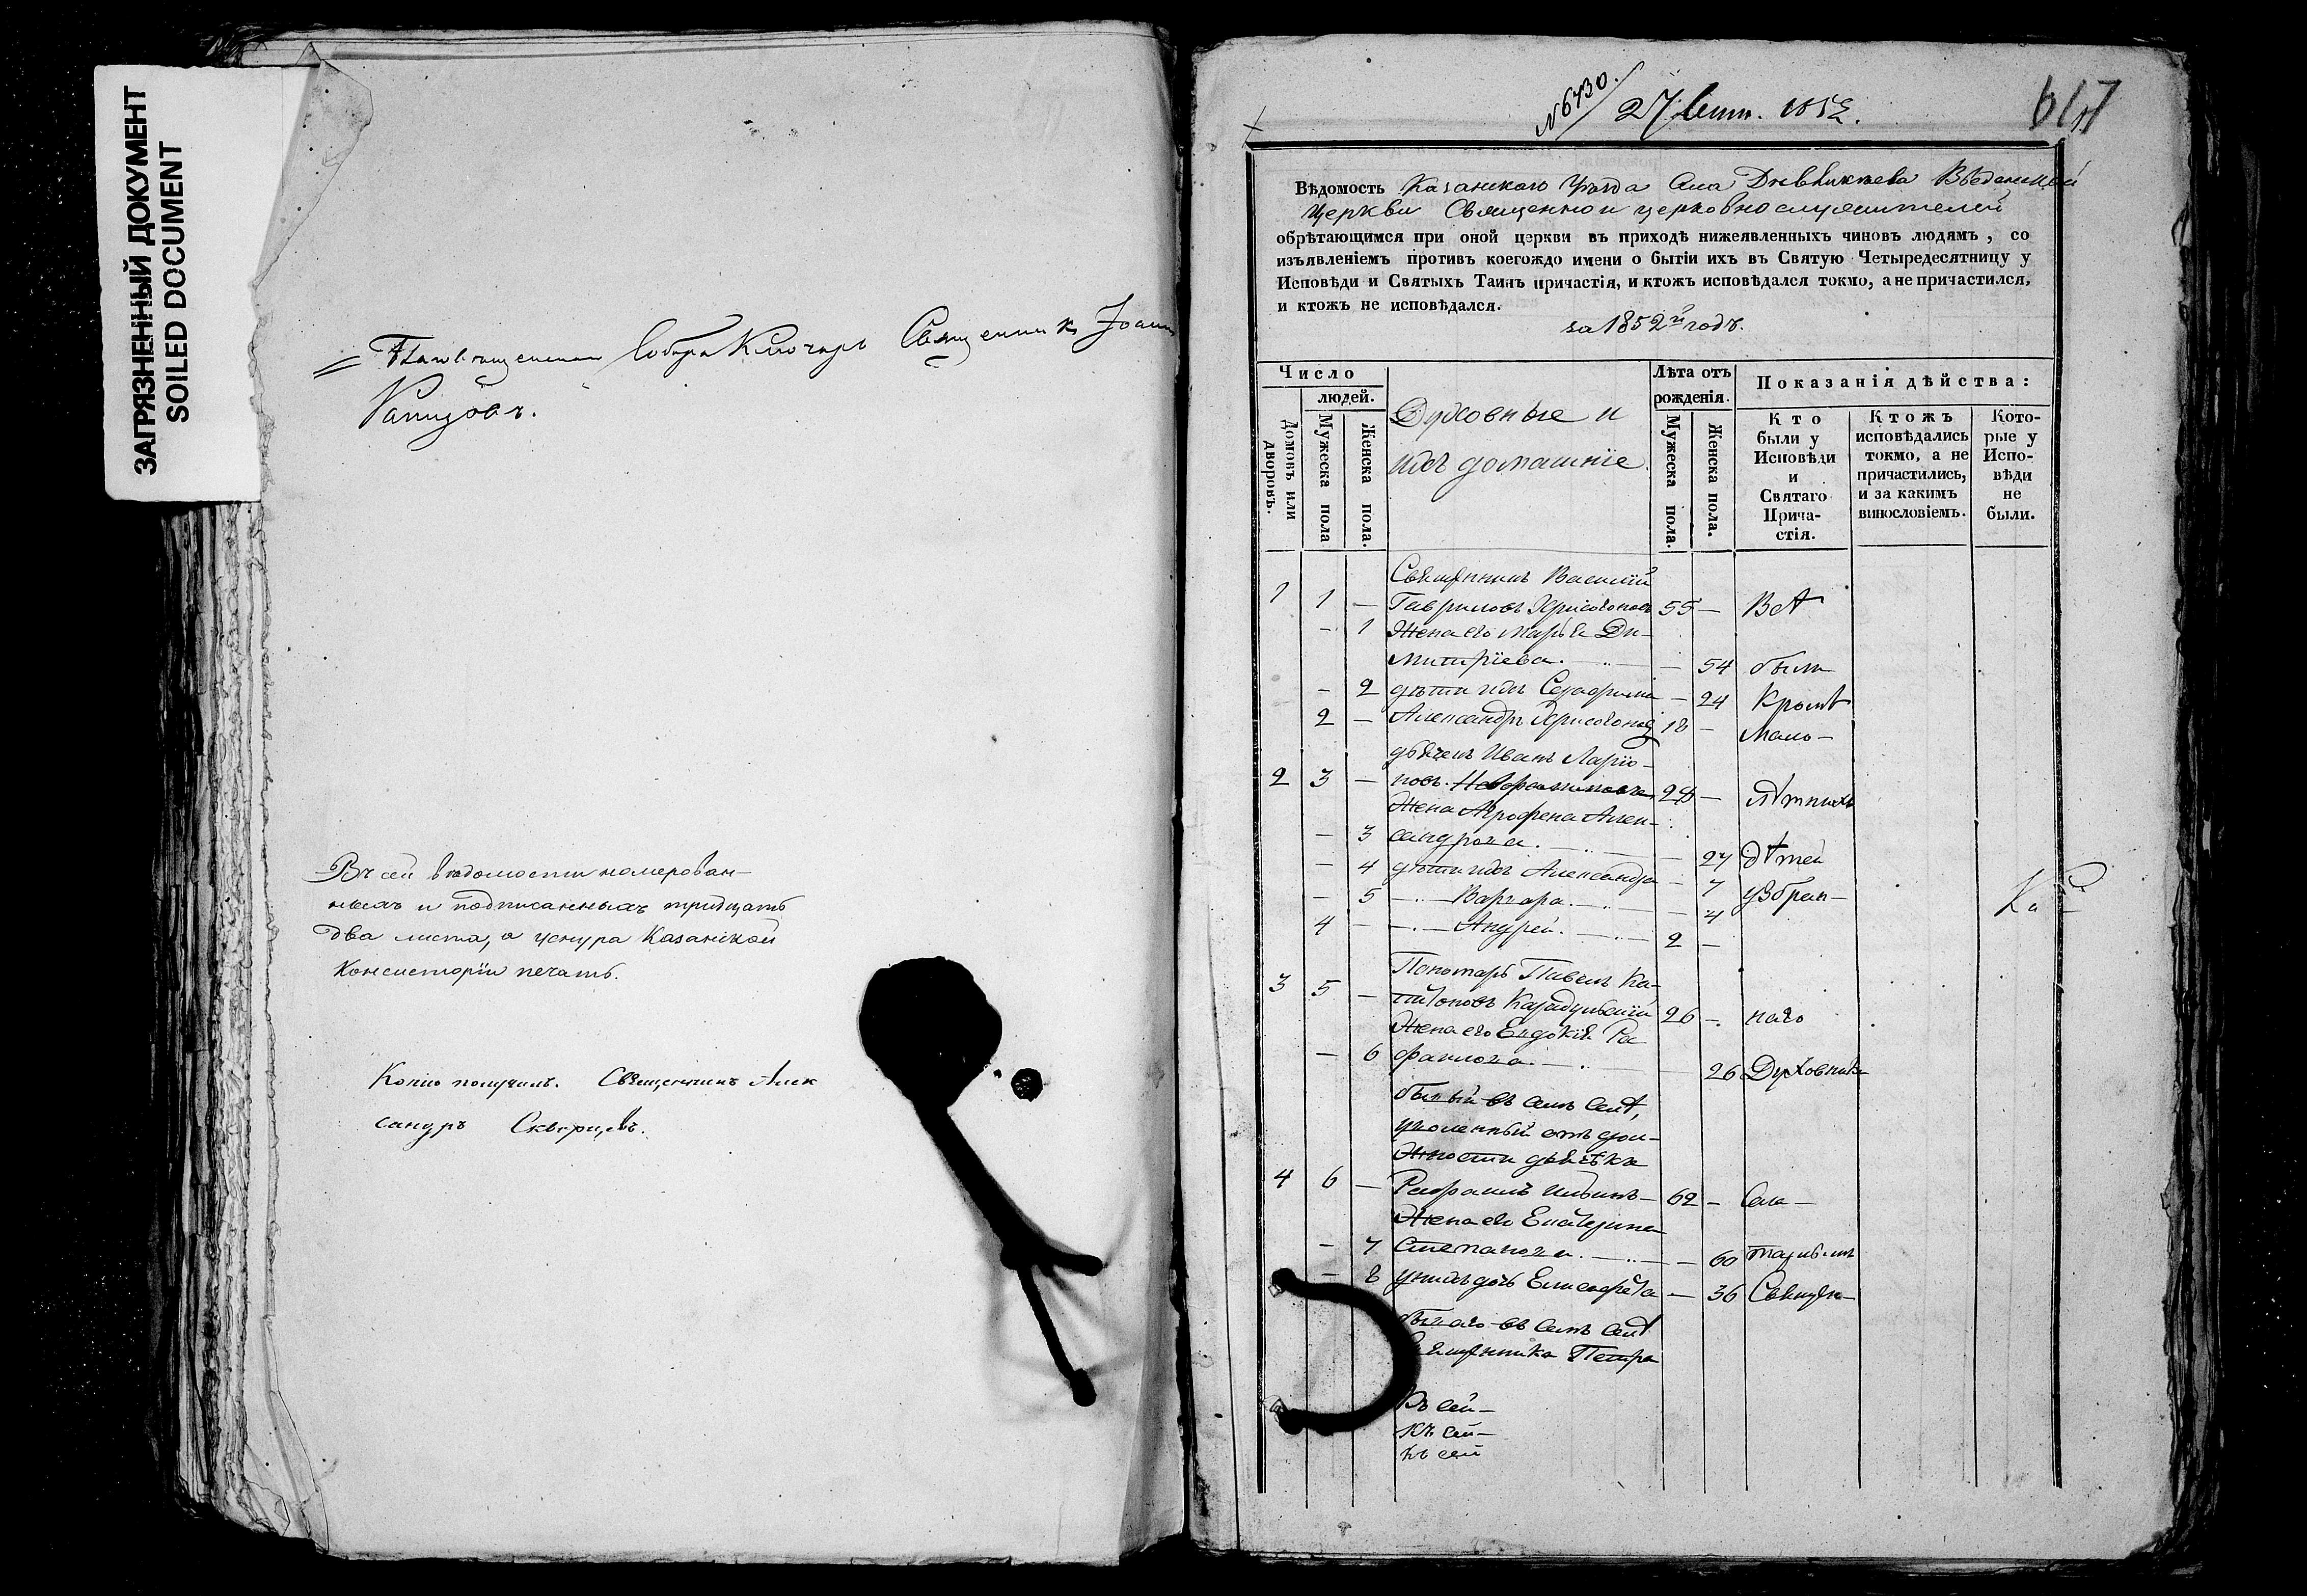 ЗАГРЯЗНЕННЫЙ ДОКУМЕНТ
SOILED DOCUMENT
Собора Ключарь Священникъ Іоаннъ
Въ сей вѣдомости номерован-
ныхъ и подписанныхъ тридцать
два листа, а уснура Казанской
Консисторіи печать.
Копію получилъ. Священникъ Алек
сандръ
№ 6430.
27 Сент. 1852.
617
Вѣдомость Казанскаго Уѣзда Села Введенской
Церкви Священно и церковнослужителей
обрѣтающимся при оной церкви въ приходѣ нижеявленныхъ чиновъ людямъ, со
изъявленіемъ противъ коегождо имени о бытіи ихъ въ Святую Четыредесятницу у
Исповѣди и Святыхъ Таинъ причастія, и ктожъ исповѣдался токмо, а не причастился,
и ктожъ не исповѣдался.
за 1852й годъ.
Число
людей.
Домовъ или дворовъ.
Мужеска пола
Женска пола.
Духовные и
ихъ домашніе
Лѣта отъ
рожденія.
Мужеска пола.
Женска пола.
Показанія дѣйства:
Кто
были у
Исповѣди
и
Святаго
Прича-
стія.
Ктожъ
исповѣдались
токмо, а не
причастились,
и за какимъ
винословіемъ.
Кото-
рые у
Испо-
вѣди
не
были.
Священникъ Василій
1 1 — Гавриловъ Хрисогоновъ 55 — Всѣ
— 1 Жена его Марья Ди-
митріева. — 54 были
— 2 дѣти ихъ Серафима — 24 Кромѣ
2 — Александръ Хрисогоновъ 18 — мало-
дьячекъ Иванъ Ларіо-
2 3 — новъ. 28 — лѣтнихъ
Жена Агрофена Алек-
— 3 сандрова. — 27 дѣтей
— 4 дѣти ихъ Александра — 7 у Збран-
— 5 — Варвара. — 4
4 — — Андрей. 2 —
Ка
Пономарь Павелъ Ка-
3 5 — питоновъ 26 — наго
Жена его Евдокія Ра
— 6 фаилова. — 26 Духовника
бывый въ семъ селѣ,
уволенный отъ дол-
жности дьячка
4 6 — Рафаилъ Ильинъ — 62 — Села —
Жена его Екатерина
— 7 Степанова. — 60
— 8 у нихъ дочь Елисавета — 36 Священ-
бывшаго въ семъ селѣ
Священника Петра
Къ сей —
къ сей —
къ сей